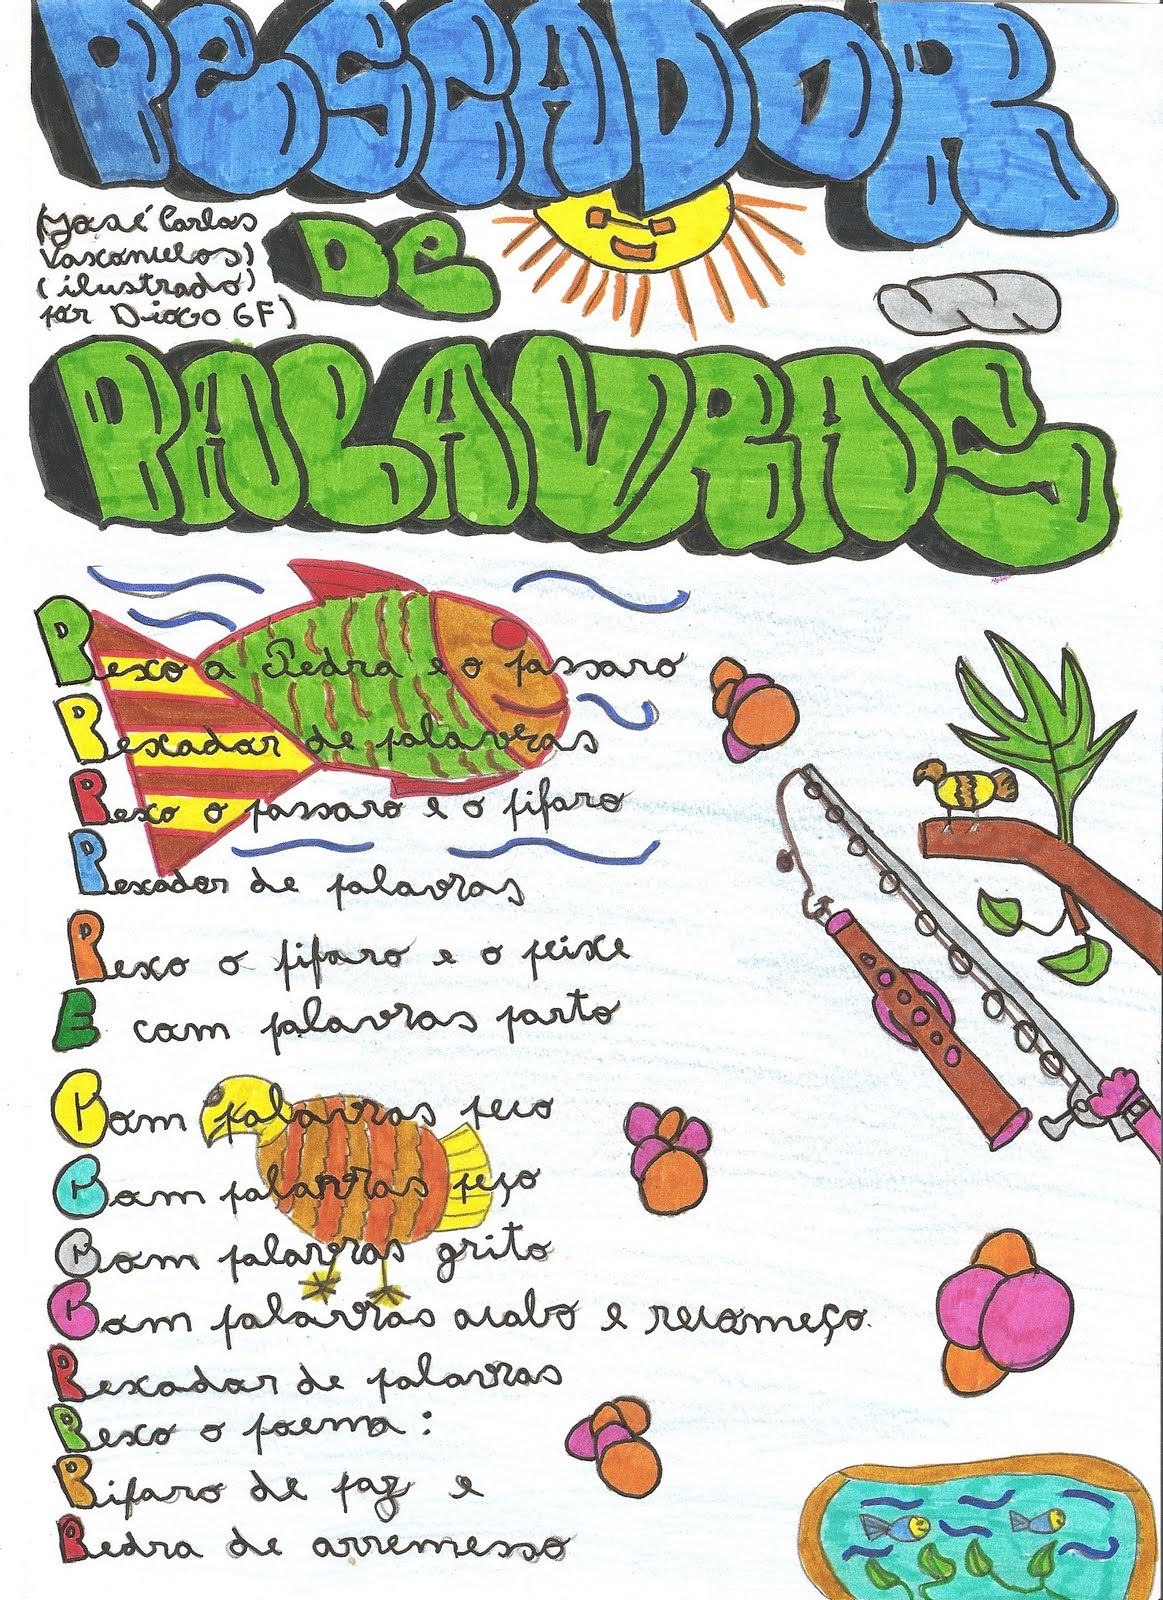 PESCADOR
(José Carlos
Vasconcelos)
(ilustrado)
por DiOGO GF)
DE
PALAVRAS
Pesco a Pedra e o passaro
Pescador de palavras
Pesco o passaro e o pifaro
Pescador de palavras
Pesco o pifaro e o peixe
E com palavras parto
Com palavras peco
Com palavras peço
Com palavras grito
Com palavras acabo e recomeço.
Pescador de palavras
Pesco o poema:
Pifaro de paz e
Pedra de arremesso